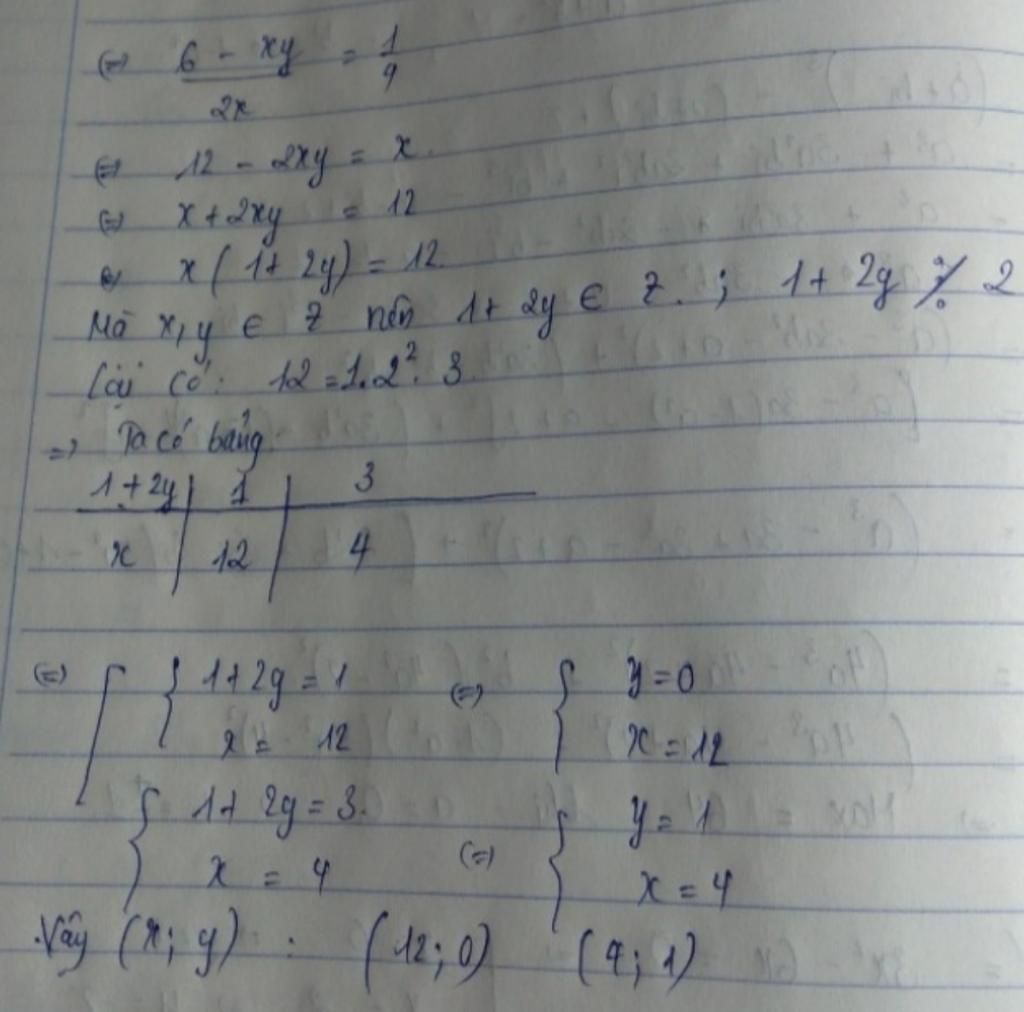 (=) 6 - xy / 2x = 1/4
(=) 12 - 2xy = x.
(=) x + 2xy = 12
(=) x ( 1 + 2y ) = 12.
Mà x, y ∈ Z nên 1 + 2y ∈ Z. ; 1 + 2y ⋮̸ 2
Lại có: 12 = 1.2². 3
=> Ta có bảng
1 + 2y | 1 | 3
x | 12 | 4
(=) [ { 1 + 2y = 1 (=) { y = 0
x = 12 x = 12
{ 1 + 2y = 3. { y = 1
x = 4 (=) x = 4
Vậy (x; y) : (12; 0) (4; 1)